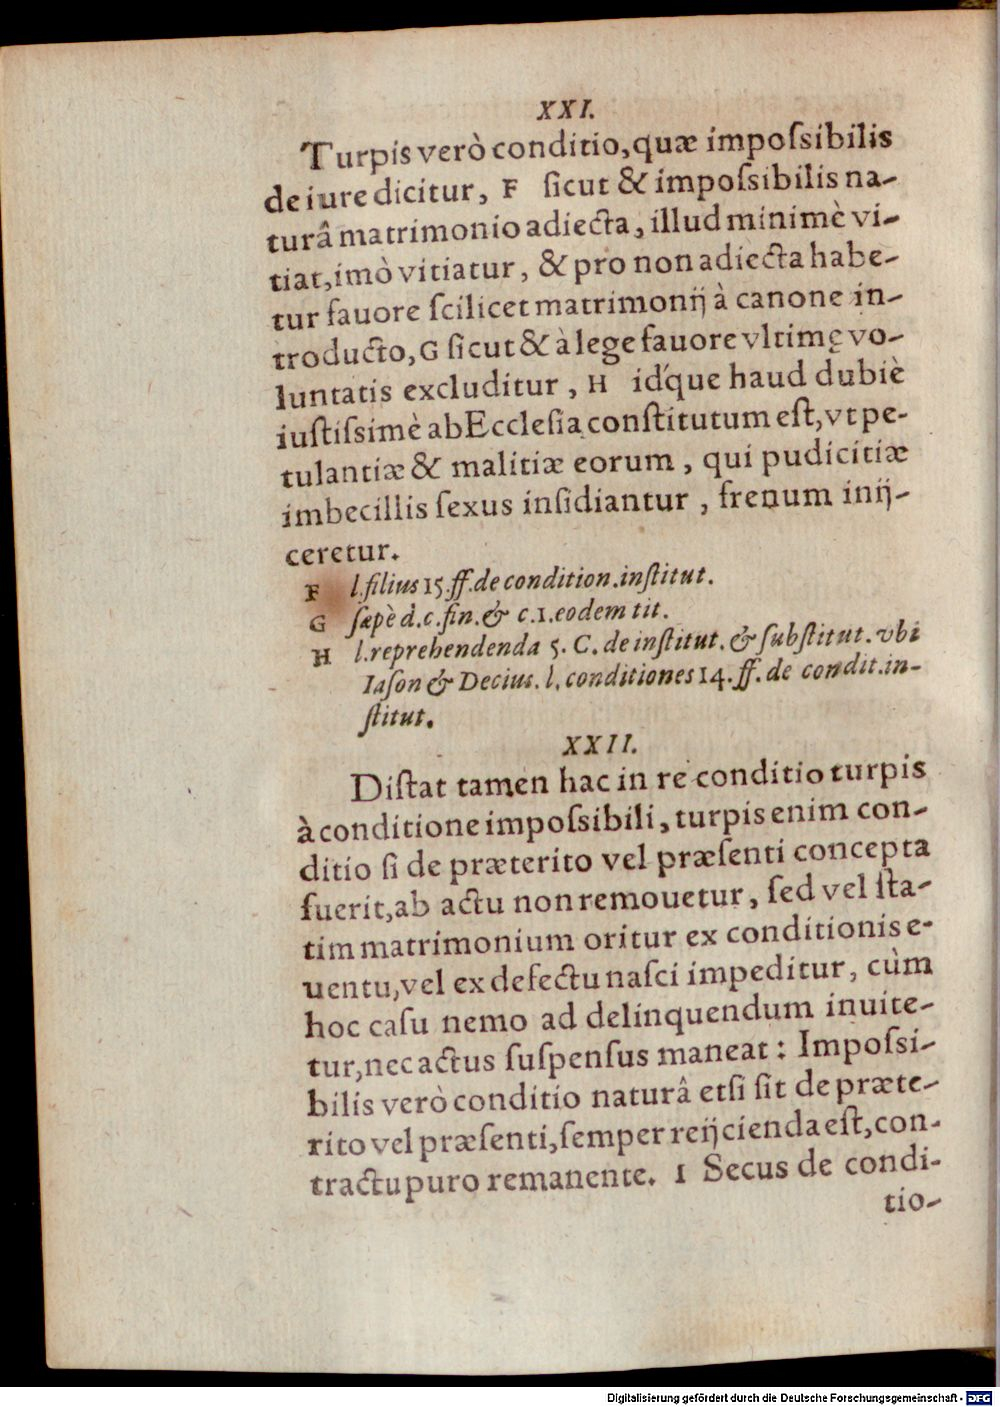 XXI.
Turpis verò conditio, quæ impoſsibilis
de iure dicitur, F ſicut & impoſsibilis na-
turâ matrimonio adiecta, illud minimè vi-
tiat, imò vitiatur, & pro non adiecta habe-
tur fauore ſcilicet matrimonij à canone in-
troducto, G ſicut & à lege fauore vltimę vo-
luntatis excluditur, H id'que haud dubiè
iuſtiſsimè ab Eccleſia conſtitutum eſt, vt pe-
tulantiæ & malitiæ eorum, qui pudicitiæ
imbecillis ſexus inſidiantur, frenum inij-
ceretur.
F l. filius 15. ff. de condition. inſtitut.
G ſæpè d. c. fin. & c. 1. eodem tit.
H l. reprehendenda 5. C. de inſtitut. & ſubſtitut. vbi
Iaſon & Decius. l. conditiones 14. ff. de condit. in-
ſtitut.
XXII.
Diſtat tamen hac in re conditio turpis
à conditione impoſsibili, turpis enim con-
ditio ſi de præterito vel præſenti concepta
fuerit, ab actu non remouetur, ſed vel ſta-
tim matrimonium oritur ex conditionis e-
uentu, vel ex defectu naſci impeditur, cùm
hoc caſu nemo ad delinquendum inuite-
tur, nec actus ſuſpenſus maneat: Impoſsi-
bilis verò conditio naturâ etſi ſit de præte-
rito vel præſenti, ſemper reijcienda eſt, con-
tractu puro remanente. I Secus de condi-
tio-
Digitalisierung gefördert durch die Deutsche Forschungsgemeinschaft - DFG